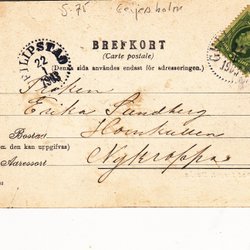 S-75
BREFKORT
(Carte postale)
(Denna sida användes endast för adresseringen.)
FILIPSTAD
22
1903
Fröken
Erika Lundberg
Bostad
Hornkullen
(när den kan uppgifvas)
Nykroppa
Adressort